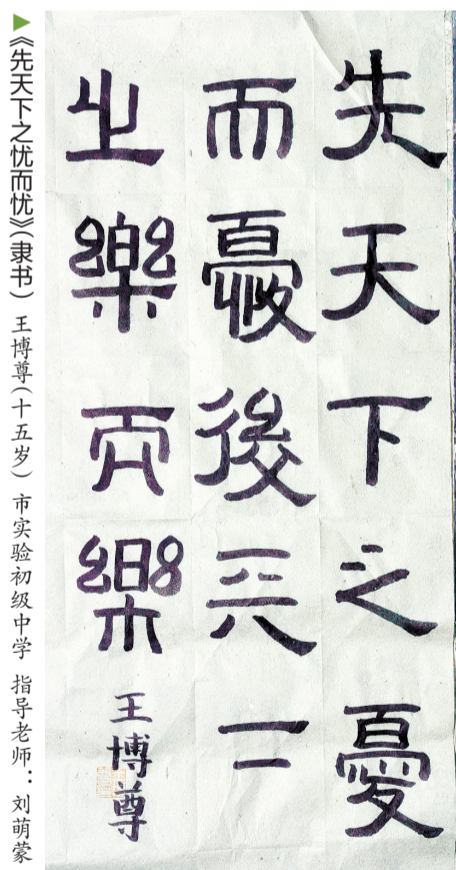 ▶《先天下之忧而忧》(隶书) 王博尊(十五岁) 市实验初级中学 指导老师：刘萌蒙
先天下之憂
而憂後天下
之樂而樂
王博尊